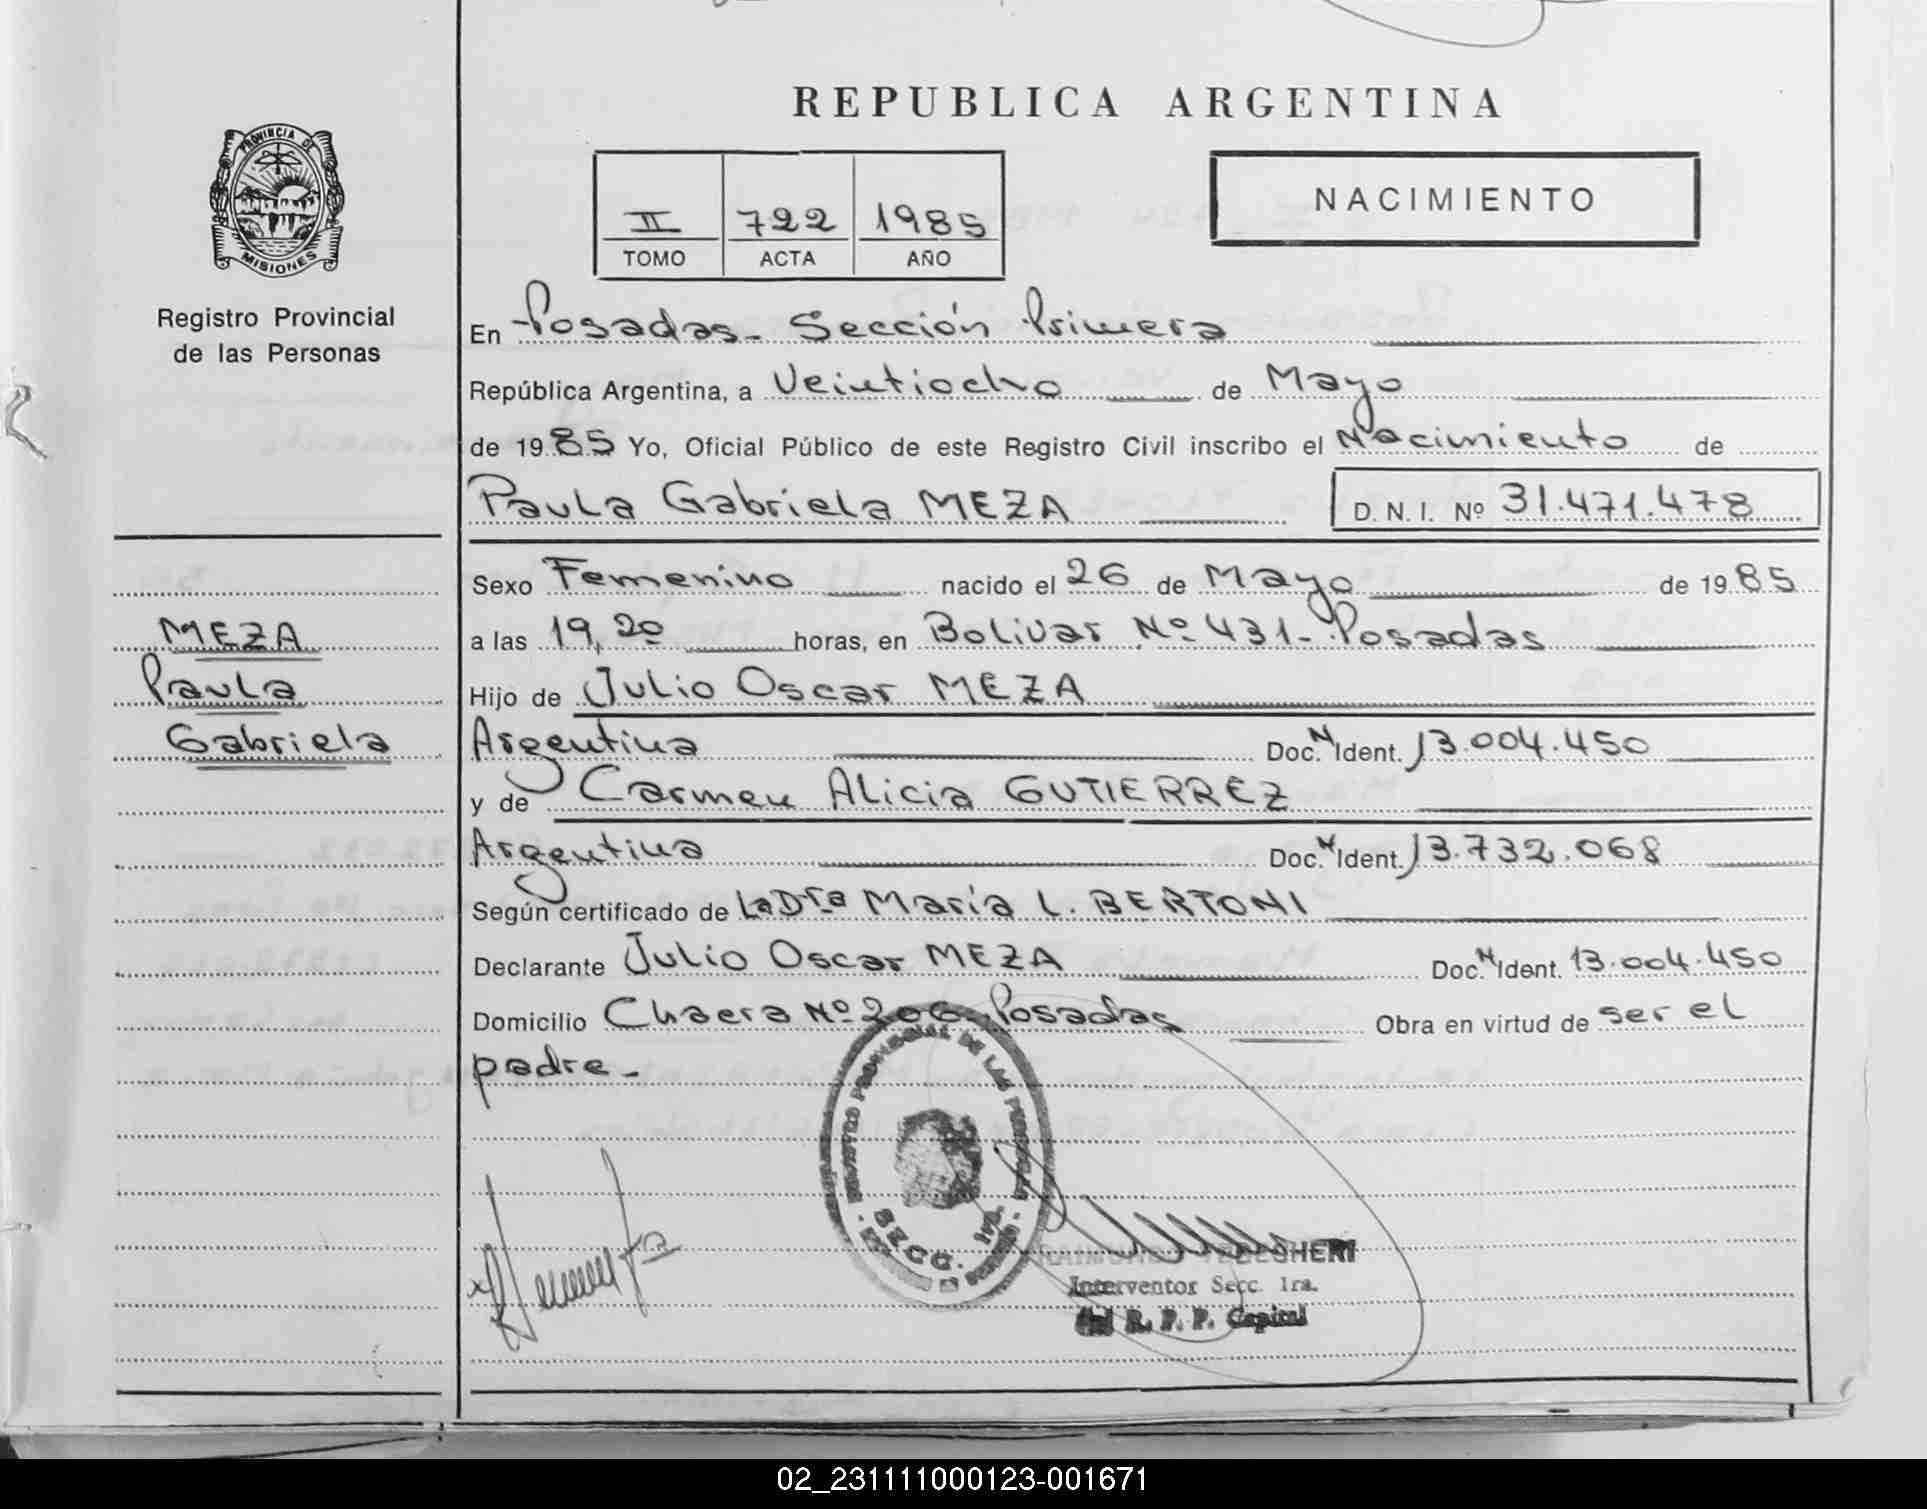 REPUBLICA ARGENTINA
PROVINCIA DE
MISIONES
Registro Provincial
de las Personas
II 722 1985
TOMO ACTA AÑO
NACIMIENTO
En Posadas - Sección Primera
República Argentina, a Veintiocho de Mayo
de 19 85 Yo, Oficial Público de este Registro Civil inscribo el Nacimiento de
Paula Gabriela MEZA D. N. I. Nº 31.471.478
Sexo Femenino nacido el 26 de Mayo de 19 85
MEZA
Paula
Gabriela
a las 19,20 horas, en Bolivar Nº 431 - Posadas
Hijo de Julio Oscar MEZA
Argentina Doc. N Ident. 13.004.450
y de Carmen Alicia GUTIERREZ
Argentina Doc. N Ident. 13.732.068
Según certificado de La Dra María L. BERTONI
Declarante Julio Oscar MEZA Doc. N Ident. 13.004.450
Domicilio Chacra Nº 206 - Posadas Obra en virtud de ser el
padre -
REGISTRO PROVINCIAL DE LAS PERSONAS
SECC. 1ra.
Interventor Secc. 1ra.
del R. P. P. Capital
02_231111000123-001671